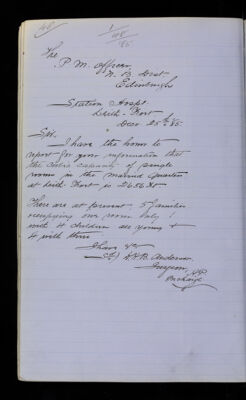 The
P. M. Officer
N. B. Dist
Edinburgh
Station Hospl
Leith Fort
Decr 25th 85.
Sir.
I have the honor to
report for your information that
the cubic capacity of single
rooms in the married quarters
at Leith Fort is 2656
There are at present 5 families
occupying one room only 1
with 4 children are young &
4 with three
I have &c
A.P.
in charge